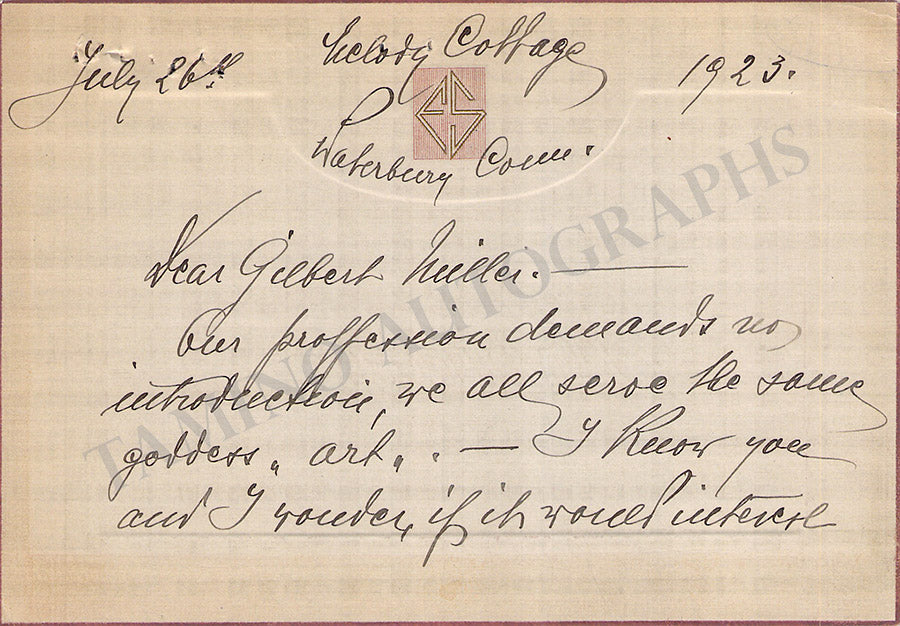 July 26th Melody Cottage 1923.
ES
Waterbury Conn.
Dear Gilbert Miller. —
Our proffession demands no
introduction, we all serve the same
goddess „ art „ . — I know you
and I wonder, if it would interest
TAMINO AUTOGRAPHS